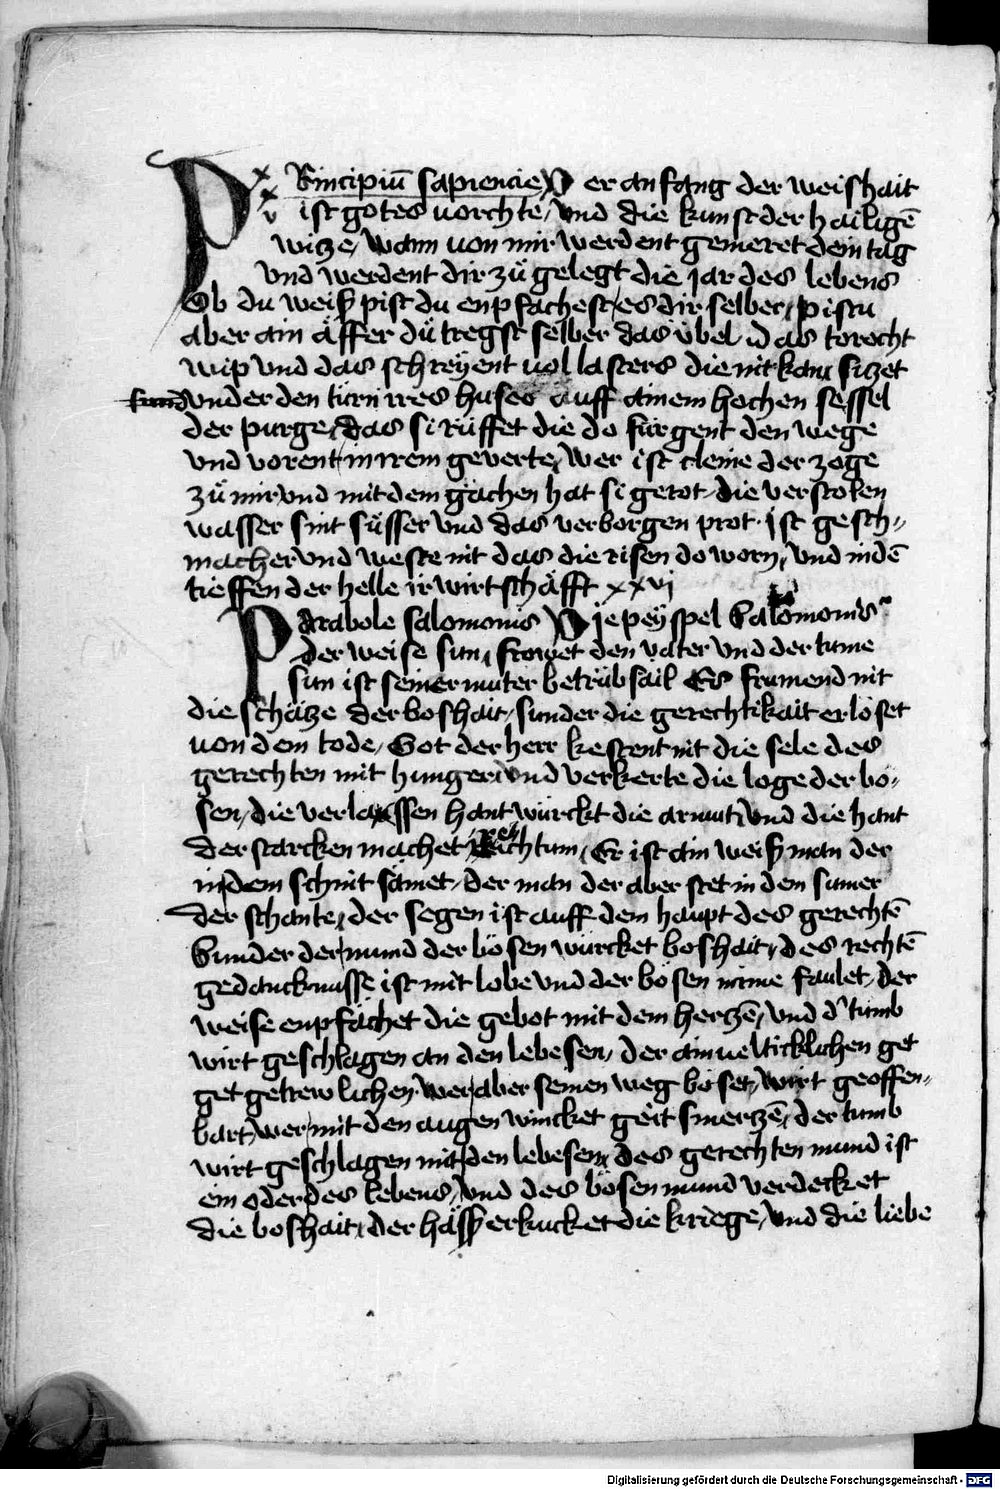 PRincipiū sapiencie D er anfang der weishait
xxv ist gotes vorchte, vnd die kunst der hailigē
witze, wann von mir werdent gemeret dein tag
vnd werdent dir zů gelegt die jar des lebens
Ob du weiß pist du enpfachest es dir selber, pistu
aber ain äffer dů tregst selber das vbel, das torecht
wip vnd das schreÿent vol lasters die nit kan, sizet
vnder den türn irres huses auff ainem hochen sessel
der purge, das si rüffet die do für gent den wege
vnd vorent in irem geverte, wer ist cleine der zoge
zů mir vnd mit dem gächen hat si getot, die verstolen
wasser sint süsser vnd das verborgen prot ist gesch⸗
macher vnd weste nit das die risen do worn, vnd in dē
tieffen der helle ir wirtschäfft xxvj
PArabole salomonis Die peÿspel Salomonis
der weise sun, frowet den vater vnd der tume
sun ist seiner muter betrübsail Es frumend nit
die schätze der boshait, sunder die gerechtikait erlöset
von dem tode, Got der herr kestent nit die sele des
gerechten mit hunger, vnd verkerte die loge der bö⸗
sen, die verlassen hant würckt die armut, vnd die hant
der starcken machet reichtum, Er ist ain weiß man der
in dem schnit sämet, der man der aber stet in dem sumer
der schante, der segen ist auff dem haupt des gerechtē
Sunder der mund der bösen würcket boshait, des rechtē
gedancknusse ist mit lobe vnd der bösen name faulet, der
weise enpfächet die gebot mit dem hertzē, vnd d' tumb
wirt geschlagen an den lebesen, der ainueltticklichen get
get getrewlichen, wer aber seinen weg böset, wirt geoffen⸗
bart, wer mit den augen wincket geit smertzē, der tumb
wirt geschlagen mit den lebesen, des gerechten mund ist
ein oder des lebens, vnd des bösen mund verdecket
die boshait, der häß erkucket die kriege, vnd die liebe
Digitalisierung gefördert durch die Deutsche Forschungsgemeinschaft - DFG